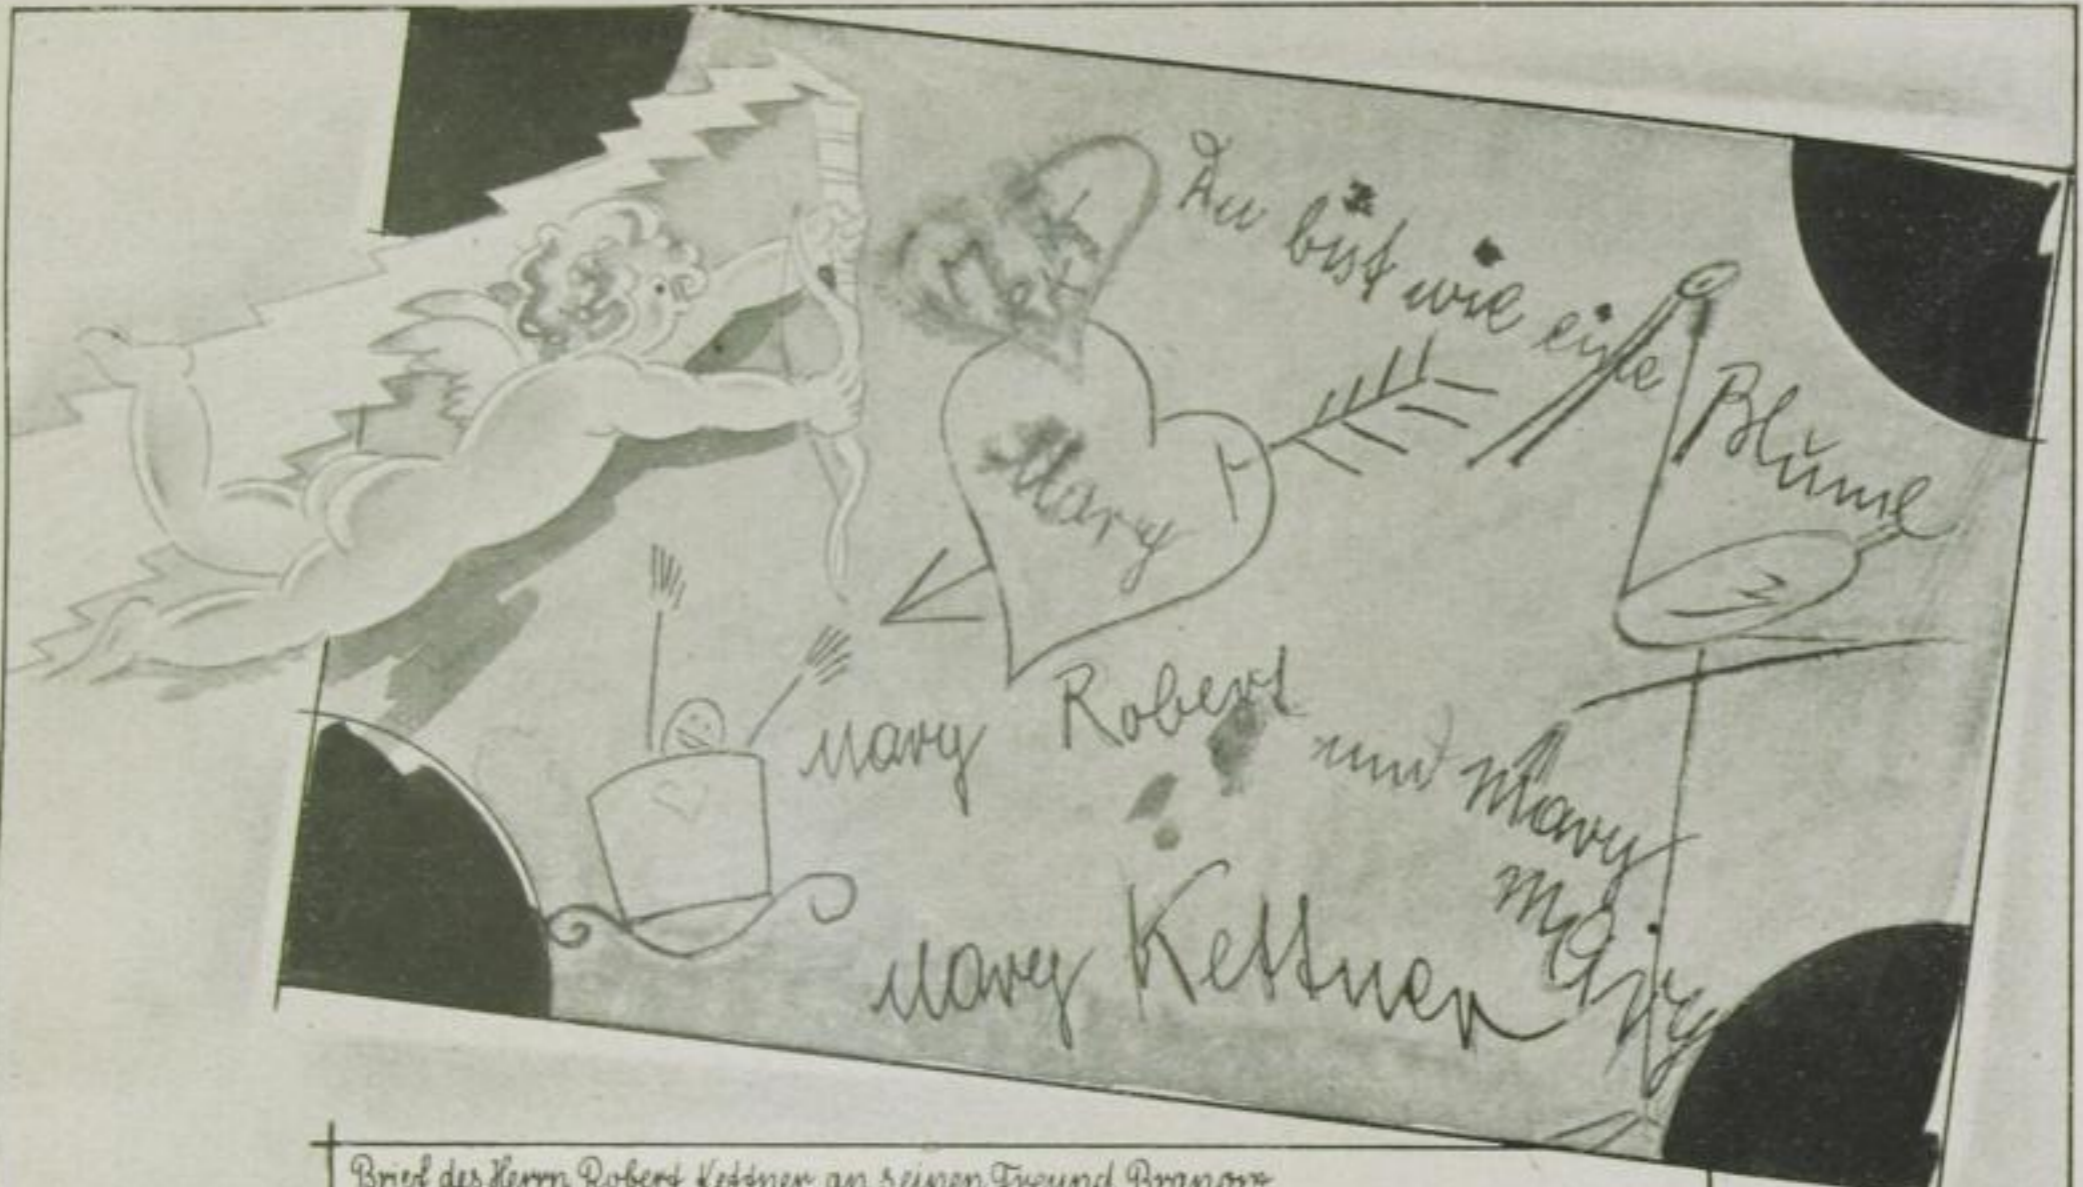 Du bist wie eine Blume
Mary
Mary Robert und Mary
Mary Kettner Mary
Brief des Herrn Robert Kettner an seinen Freund